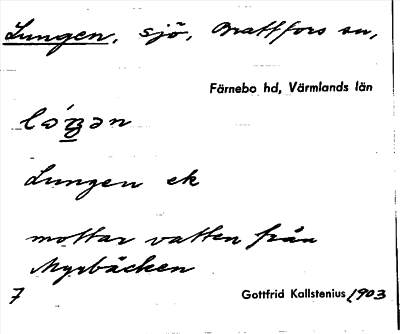 Lungen, sjö, Brattfors sn,
Färnebo hd, Värmlands län
Lungen ek
mottar vatten från
Myrbäcken
7
Gottfrid Kallstenius 1903